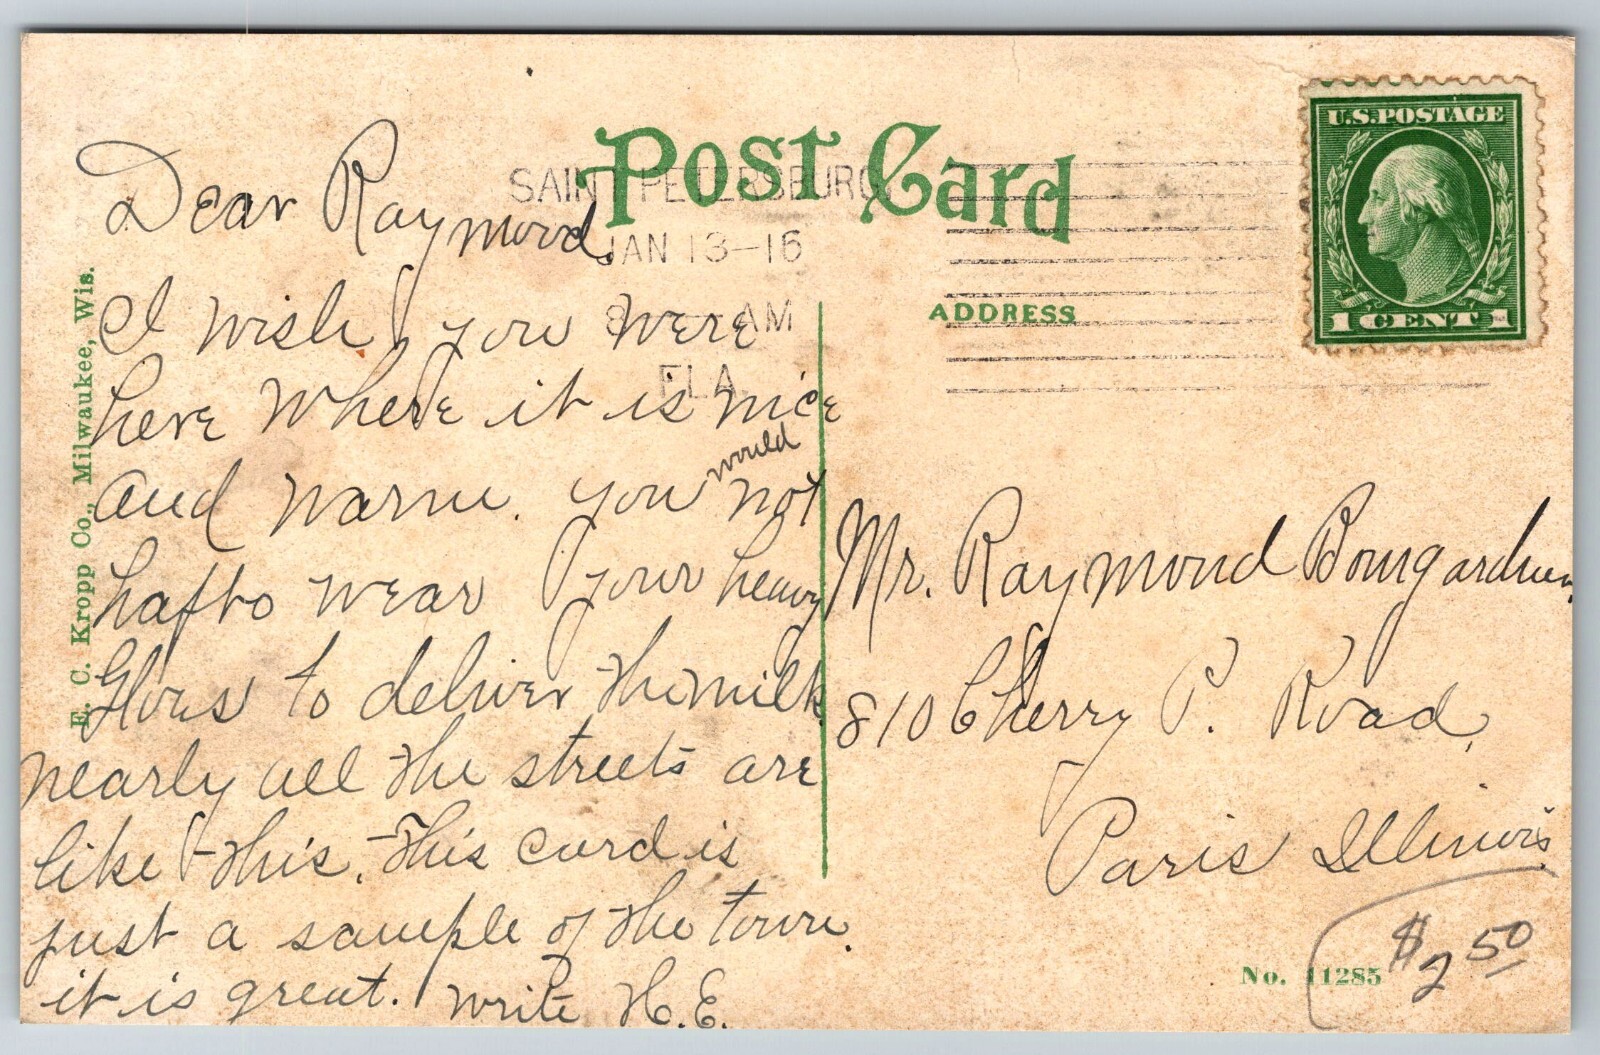 Post Card
SAINT PETERSBURG,
JAN 13-16
8 AM
FLA.
U.S. POSTAGE
1 CENT 1
ADDRESS
E. C. Kropp Co., Milwaukee, Wis.
Dear Raymond.
I wish you were
here where it is nice
and warm. you would not
hafto wear your heavy
Gloves to deliver the milk
nearly all the streets are
like this. This card is
just a sample of the town.
it is great. write H.E.
Mr. Raymond Bomgardner.
810 Cherry P. Road,
Paris Illinois
No. 11285
$2 50